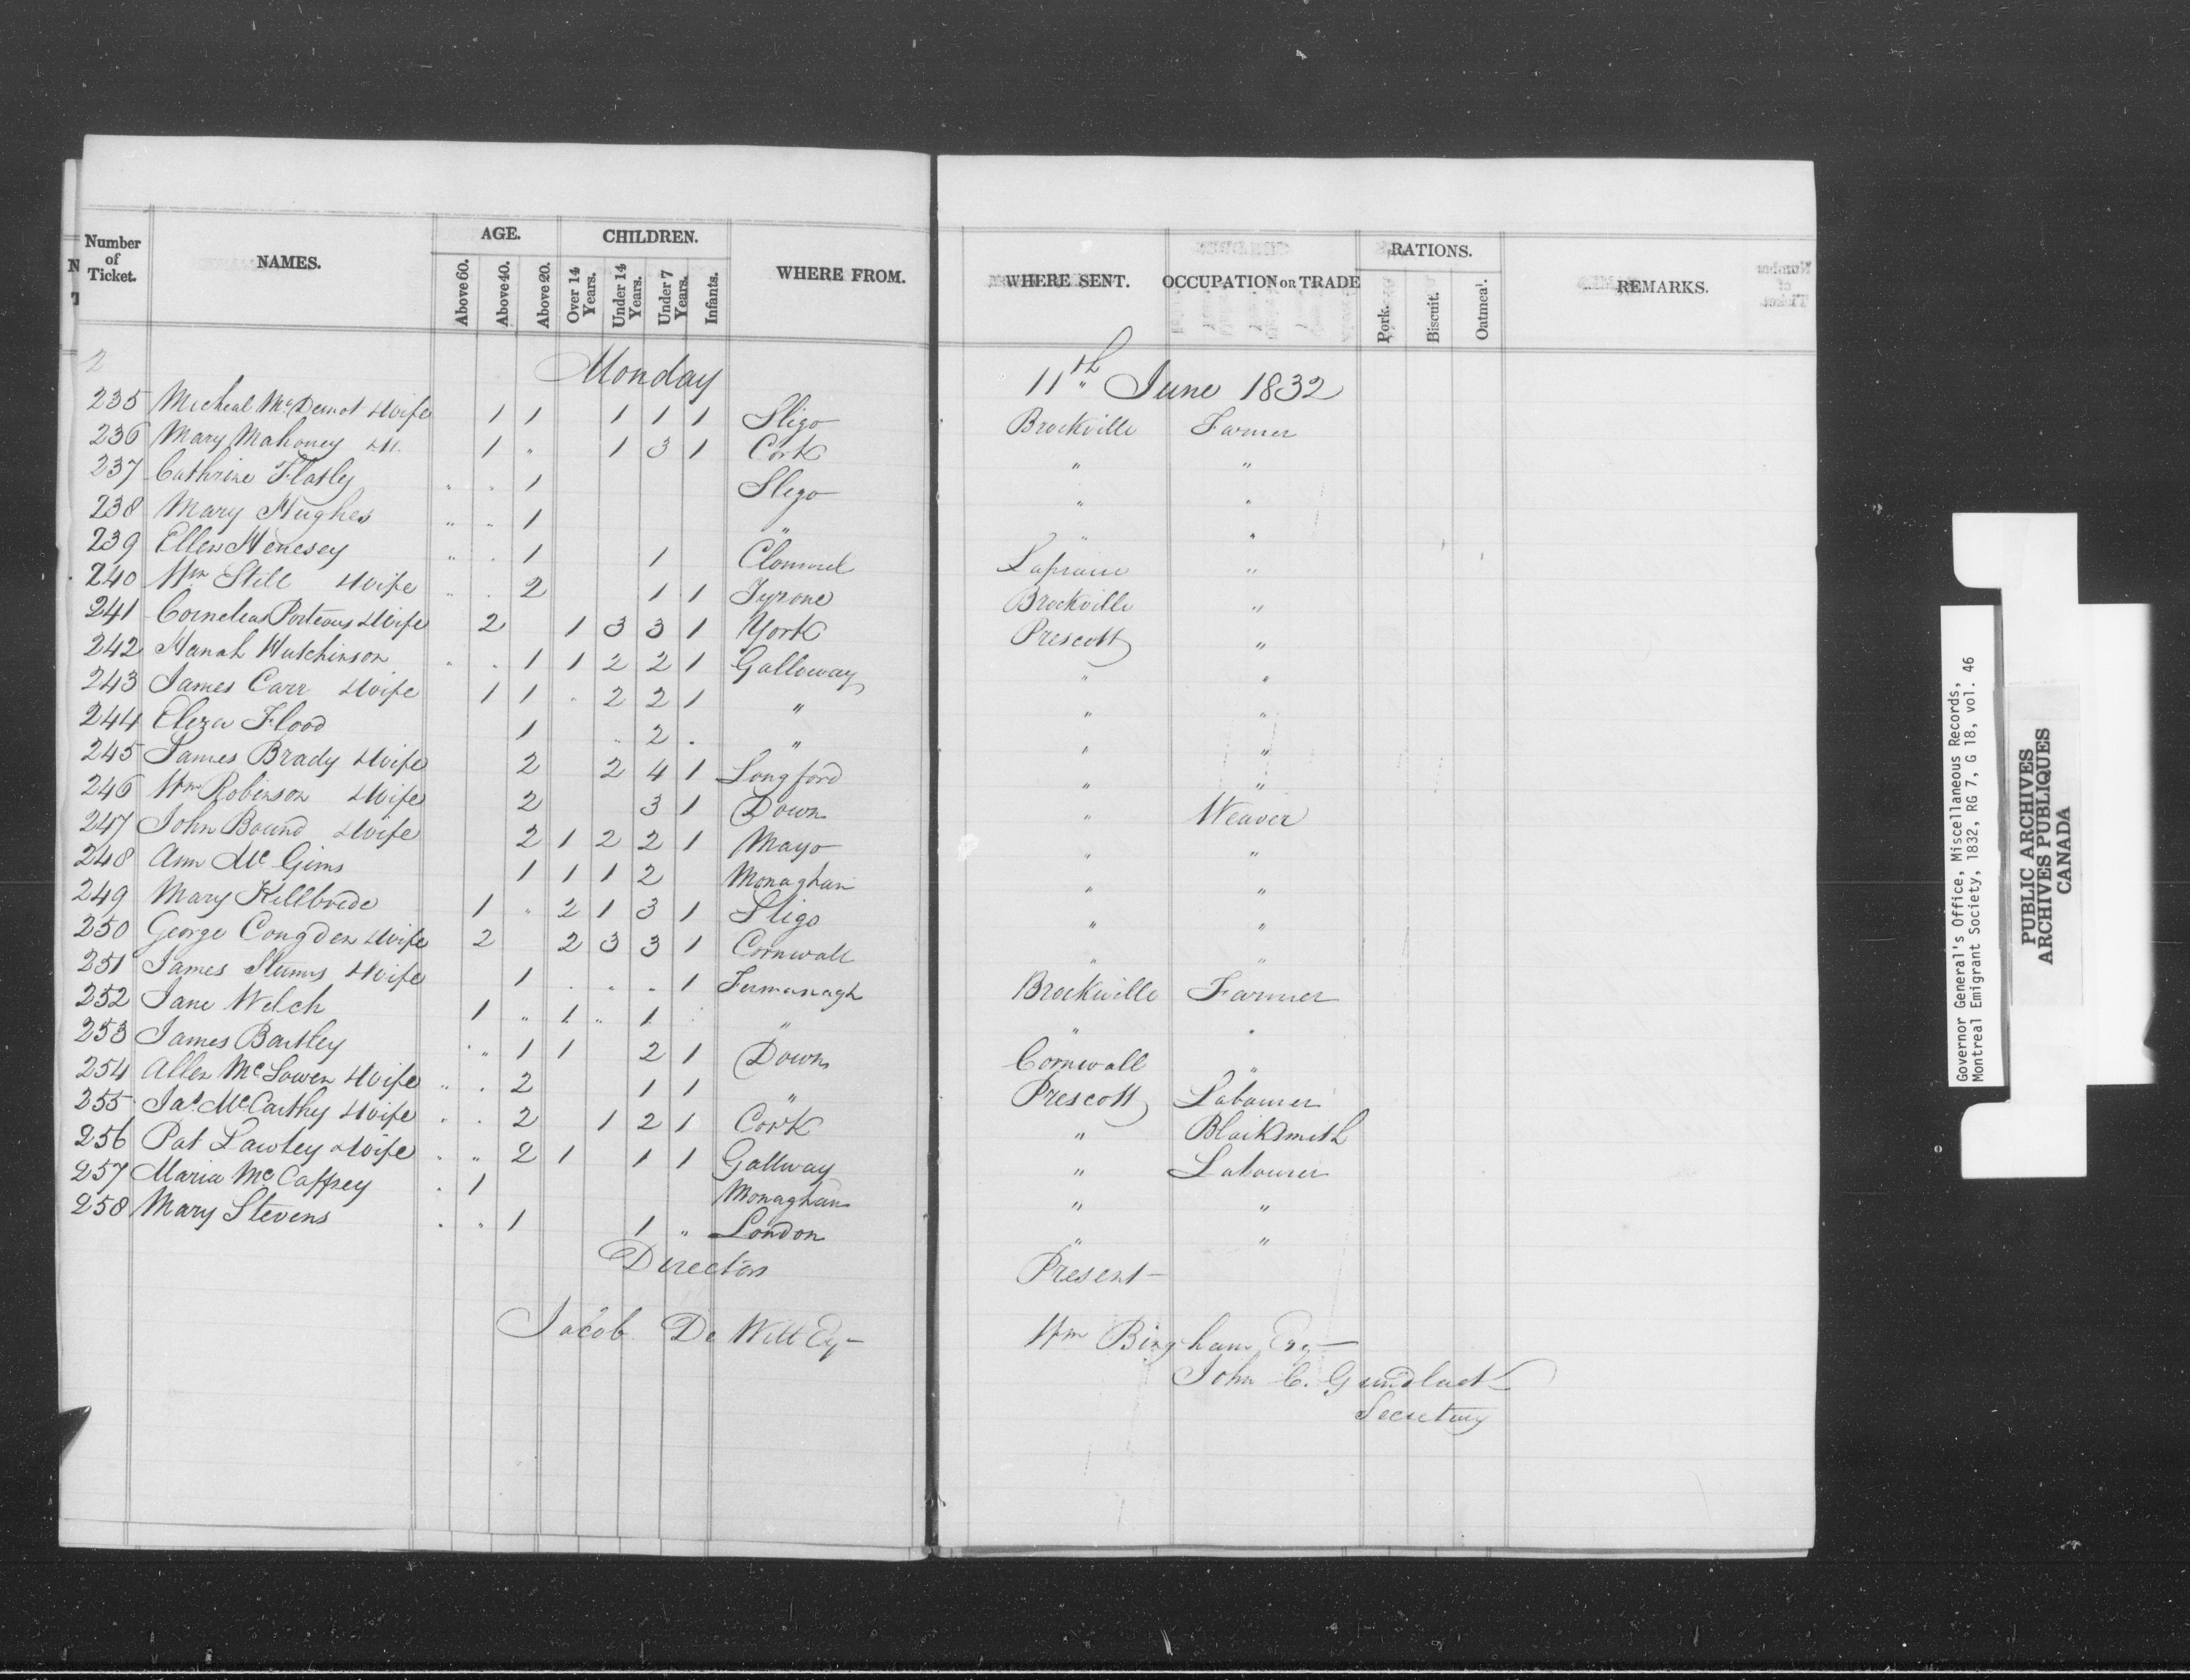 Number of Ticket. NAMES. AGE. CHILDREN. WHERE FROM. WHERE SENT. OCCUPATION OR TRADE RATIONS. REMARKS.
Above 60. Above 40. Above 20. Over 14 Years. Under 14 Years. Under 7 Years. Infants. Pork. Biscuit. Oatmeal.
2
Monday 11th June 1832
235 Micheal McDermot & Wife 1 1 1 1 1 Sligo Brockville Farmer
236 Mary Mahoney 1 " 1 3 1 Cork " "
237 Cathrine Flatley " " 1 Sligo " "
238 Mary Hughes " " 1 " " "
239 Ellen Henesey " " 1 1 Clonmel Laprarie "
240 Wm Still & Wife " . 2 1 1 Tyrone Brockville "
241 Cornelias Porteous & Wife 2 1 3 3 1 York Prescott "
242 Hanah Hutchinson " . 1 1 2 2 1 Galloway " "
243 James Carr & Wife 1 1 . 2 2 1 " " "
244 Eliza Flood 1 " 2 . " " "
245 James Brady & Wife 2 2 4 1 Longford " "
246 Wm Robinson & Wife 2 3 1 Down " Weaver
247 John Bound & Wife 2 1 2 2 1 Mayo " "
248 Ann Mc Gims 1 1 1 2 Monaghan " "
249 Mary Killbride 1 " 2 1 3 1 Sligo " "
250 George Congden & Wife 2 2 3 3 1 Cornwall " "
251 James & Wife 1 . . . 1 Fermanagh Brockville Farmer
252 Jane Welch 1 " 1 " 1 " " "
253 James Bartley . " 1 1 2 1 Down Cornwall "
254 Allen McLowen & Wife " . 2 1 1 " Prescott Labourer
255 Jas. McCarthy & Wife . . 2 1 2 1 Cork " Blacksmith
256 Pat Lawley & Wife . " 2 1 1 1 Gallway " Labourer
257 Maria McCaffrey . 1 Monaghan " "
258 Mary Stevens . " 1 1 " London " "
Directors Present
Jacob De Witt Esq Wm Bingham Esq
John C. Gundlack
Secretary
Governor General's Office, Miscellaneous Records,
Montreal Emigrant Society, 1832, RG 7, G 18, vol. 46
PUBLIC ARCHIVES
ARCHIVES PUBLIQUES
CANADA